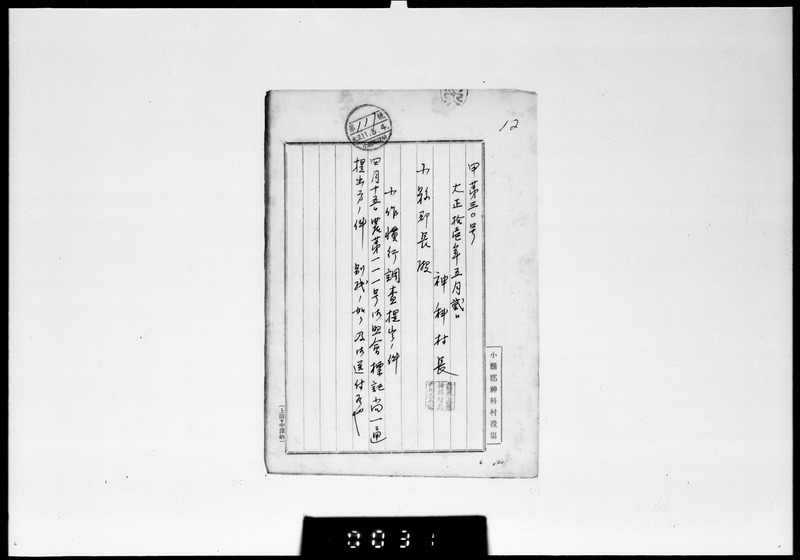 12
甲第三〇号
大正拾壱年五月貳日
神科村長
小縣郡長殿
小作慣行調査提出ノ件
四月十五日農第一一一号御照会標記尚一通
提出方ノ件 別紙ノ如ク及御送付候也
小縣郡神科村役場
第111號
大正11.5.4.
0031